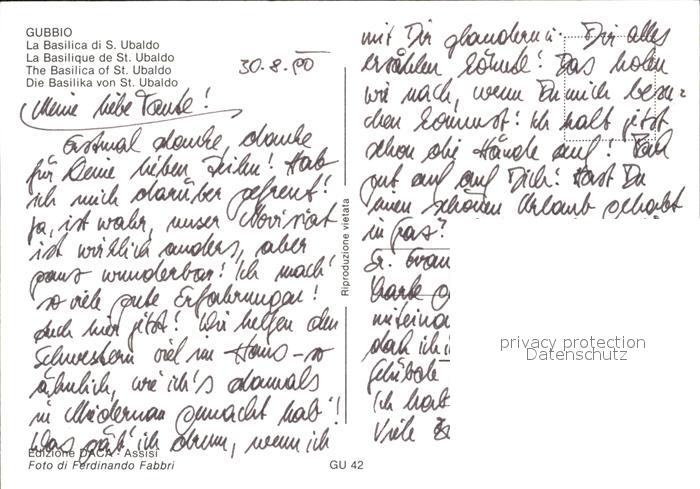 GUBBIO
La Basilica di S. Ubaldo
La Basilique de St. Ubaldo
The Basilica of St. Ubaldo
Die Basilika von St. Ubaldo
30.8.
Meine liebe Tante!
Erstmal danke, danke
für Deine lieben Zeilen! Hab
ich mich darüber gefreut!
Ja, ist wahr, unser Noviziat
ist wirklich anders, aber
ganz wunderbar! Ich mach'
so viele gute Erfahrungen!
Auch hier jetzt! Wir helfen den
Schwestern viel im Haus - so
ähnlich, wie ich's damals
in gemacht hab'!
Was gäb' ich drum, wenn ich
Edizione DACA - Assisi
Foto di Ferdinando Fabbri
Riproduzione vietata
GU 42
mit Dir plaudern u. Dir alles
erzählen könnte! Das holen
wir nach, wenn Du mich besu=
chen kommst! Ich halt jetzt
schon die Hände auf!
gut auf auf Dich! Hast Du
einen schönen Urlaub gehabt
in
Sr.
Karte
miteina
daß ich
Ich hab
Viele
privacy protection
Datenschutz